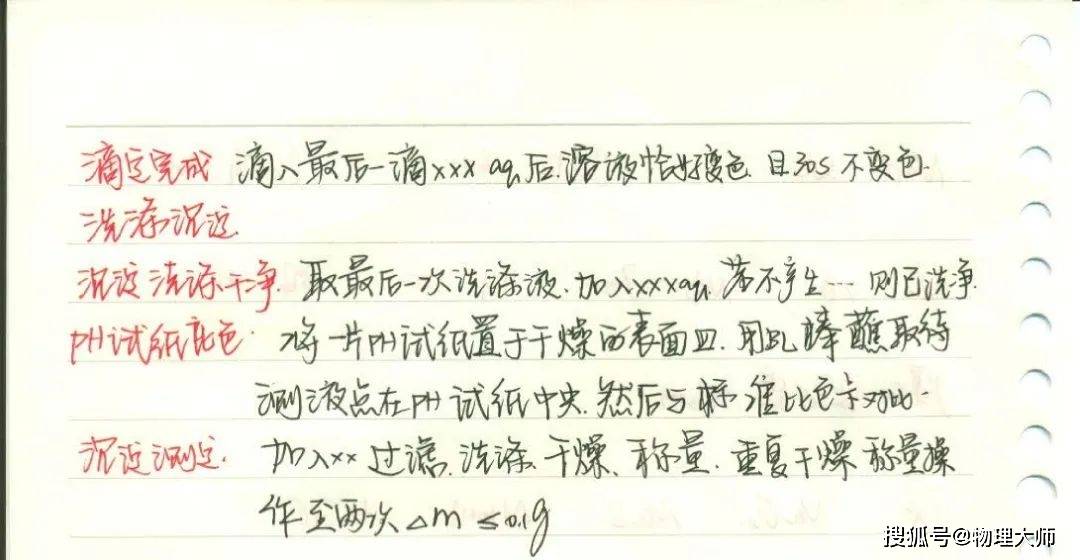 滴定完成 滴入最后一滴xxx aq后.溶液恰好变色.且30s不变色.
洗涤沉淀.
沉淀洗涤干净. 取最后一次洗涤液.加入xxxaq.若不产生…则已洗净.
PH试纸比色. 将一片PH试纸置于干燥的表面皿.用BL棒蘸取待
测液点在PH试纸中央.然后与标准比色卡对比.
沉淀测定. 加入xx过滤.洗涤.干燥、称量.重复干燥称量操
作至两次△m≤0.1g
搜狐号@物理大师